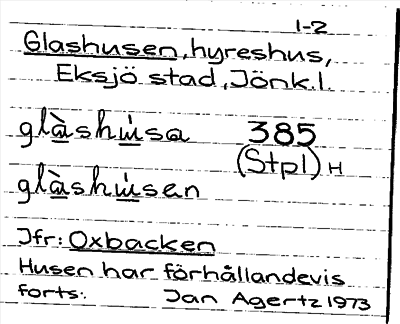 1-2
Glashusen, hyreshus,
Eksjö stad, Jönk.l.
glàshu̇sa 385
(Stpl) H
glàshu̇sen
Jfr: Oxbacken
Husen har förhållandevis
forts. Jan Agertz 1973